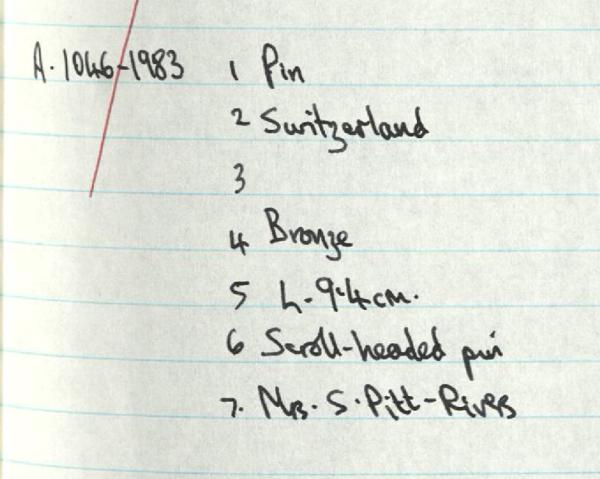 A. 1046-1983 1 Pin
2 Switzerland
3
4 Bronze
5 L - 9.4 cm.
6 Scroll-headed pin
7. Mrs. S. Pitt-Rivers